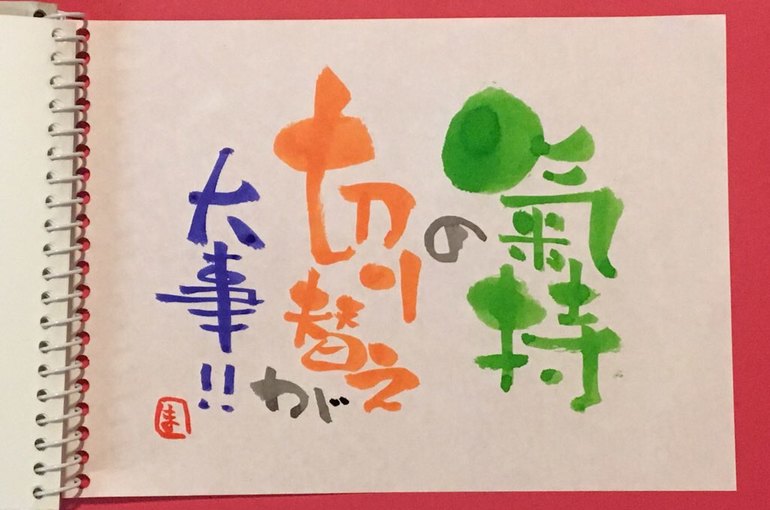 氣持の
切り替えが
大事!!